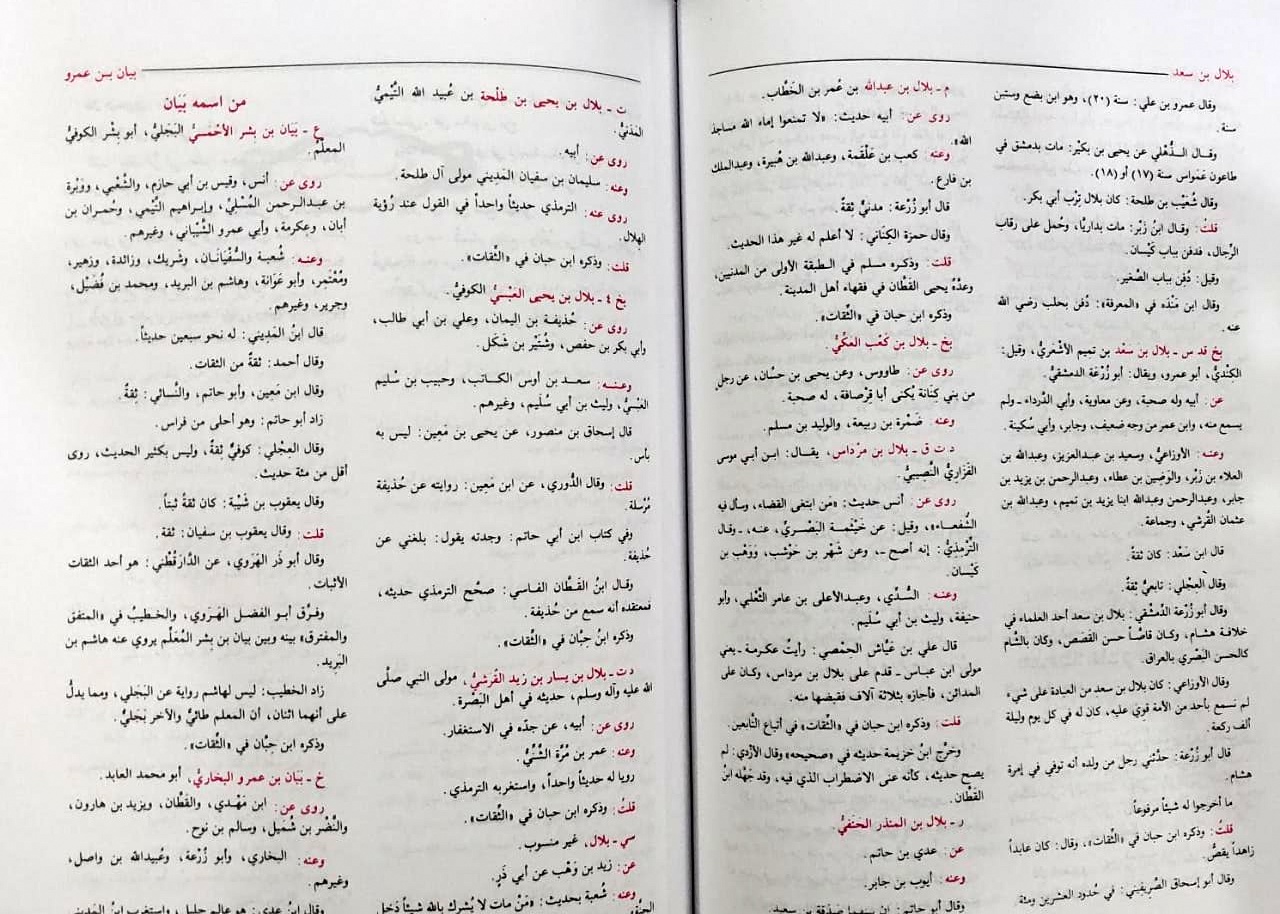 بلال بن سعد
وقال عمرو بن علي: سنة (٢٠)، وهو ابن بضع وستين
سنة.
وقال الذُّهْلي عن يحيى بن بكير: مات بدمشق في
طاعون عَمْواس سنة (١٧) أو (١٨).
وقال شُعَيْب بن طلحة: كان بلال تِرْب أبي بكر.
قلتُ: وقال ابنُ زَبْر: مات بداريَّا، وحُمل على رقاب
الرِّجال، فدفن بباب كَيْسان.
وقيل: دُفن بباب الصَّغير.
وقال ابن مَنْدَه في «المعرفة»: دُفن بحلب رضي الله
عنه.
بخ قد س ـ بلال بن سعْد بن تميم الأشْعَريُّ، وقيل:
الكِنْديُّ، أبو عمرو، ويقال: أبو زُرْعة الدمشقيُّ.
عن: أبيه وله صحبة، وعن معاوية، وأبي الدَّرداء ـ ولم
يسمع منه، وابن عمر من وجه ضعيف، وجابر، وأبي سُكينة.
وعنه: الأوزاعيُّ، وسعيد بن عبدالعزيز، وعبدالله بن
العلاء بن زَبْر، والوَضين بن عطاء، وعبدالرحمن بن يزيد بن
جابر، وعبدالرحمن وعبدالله ابنا يزيد بن تميم، وعبدالله بن
عثمان القُرشي، وجماعة.
قال ابن سَعْد: كان ثقةً.
وقال العِجْلي: تابعيٌّ ثقةٌ.
وقال أبو زُرْعة الدِّمشْقي: بلال بن سعد أحد العلماء في
خلافة هشام، وكان قاصّاً حسن القَصَص، وكان بالشَّام
كالحسن البَصْري بالعراق.
وقال الأوزاعي: كان بلال بن سعد من العبادة على شيء
لم نسمع بأحد من الأمة قوي عليه، كان له في كل يوم وليلة
ألف ركعة.
قال أبو زُرْعة: حدَّثني رجل من ولده أنه توفي في إمرة
هشام.
ما أخرجوا له شيئاً مرفوعاً.
قلتُ: وذكره ابن حبان في «الثِّقات»، وقال: كان عابداً
زاهداً يقصُّ.
وقال أبو إسحاق الصَّريفيني: في حُدود العشرين ومئة.
م ـ بلال بن عبدالله بن عُمر بن الخَطَّاب.
روى عن: أبيه حديث: «لا تمنعوا إماء الله مساجد
الله».
وعنه: كعب بن عَلْقمة، وعبدالله بن هُبيرة، وعبدالملك
بن فارع.
قال أبو زُرْعة: مدنيٌّ ثقةٌ.
وقال حمزة الكِنَاني: لا أعلم له غير هذا الحديث.
قلت: وذكره مسلم في الطبقة الأولى من المدنيين،
وعدَّهُ يحيى القَطَّان في فقهاء أهل المدينة.
وذكره ابن حبان في «الثِّقات».
بخ ـ بلال بن كَعْب العَكِّيُّ.
روى عن: طاووس، وعن يحيى بن حسَّان، عن رجل
من بني كنانة يُكنى أبا قِرْصافة، له صحبة.
وعنه: ضَمْرة بن ربيعة، والوليد بن مسلم.
د ت ق ـ بلال بن مِرْداس، يقال: ابن أبي موسى
الفَزَاريُّ النَّصيبيُّ.
روى عن: أنس حديث: «مَن ابتغى القضاء، وسأل فيه
الشُّفعاء»، وقيل: عن خَيْثمة البَصْريِّ، عنه، ـ وقال
التِّرمذيُّ: إنه أصح ـ، وعن شَهْر بن حَوْشب، ووَهْب بن
كَيْسان.
وعنه: السُّدِّي، وعبدالأعلى بن عامر الثَّعْلبي، وأبو
حنيفة، وليث بن أبي سُلَيم.
قال علي بن عَيَّاش الحِمْصي: رأيتُ عكرمة ـ يعني
مولى ابن عباس ـ قدم على بلال بن مرداس، وكان على
المدائن، فأجازه بثلاثة آلاف فقبضها منه.
قلت: وذكره ابن حبان في «الثِّقات» في أتباع التَّابعين.
وخرَّج ابنُ خزيمة حديثه في «صحيحه» وقال الأزدي: لم
يصح حديثه، كأنه عنى الاضطراب الذي فيه، وقد جَهَّله ابنُ
القَطَّان.
ر ـ بلال بن المنذر الحَنَفيُّ.
عن: عدي بن حاتم.
وعنه: أيوب بن جابر.
وقال أبو حاتم:
بيان بن عمرو
ت ـ بلال بن يحيى بن طَلْحة بن عُبيد الله التَّيْميُّ
المَدَنيُّ.
روى عن: أبيه.
وعنه: سليمان بن سفيان المَدِيني مولى آل طلحة.
روى عنه: الترمذي حديثاً واحداً في القول عند رُؤية
الهلال.
قلت: وذكره ابن حبان في «الثِّقات».
بخ ٤ ـ بلال بن يحيى العَبْسيُّ الكوفيُّ.
روى عن: حُذيفة بن اليمان، وعلي بن أبي طالب،
وأبي بكر بن حفص، وشُتَيْر بن شَكَل.
وعنه: سعد بن أوس الكاتب، وحبيب بن سُليم
العَبْسيُّ، وليث بن أبي سُلَيم، وغيرهم.
قال إسحاق بن منصور، عن يحيى بن مَعِين: ليس به
بأس.
قلت: وقال الدُّوري، عن ابن مَعِين: روايته عن حُذيفة
مُرْسلة.
وفي كتاب ابن أبي حاتم: وجدته يقول: بلغني عن
حُذيفة.
وقال ابنُ القَطَّان الفاسي: صحَّح الترمذي حديثه،
فمعتقده أنه سمع من حُذيفة.
وذكره ابنُ حِبَّان في «الثِّقات».
د ت ـ بلال بن يسار بن زيد القُرشيُّ، مولى النبي صلَّى
الله عليه وآله وسلم، حديثه في أهل البَصْرة.
روى عن: أبيه، عن جدِّه في الاستغفار.
وعنه: عمر بن مُرَّة الشَّنِّيُّ.
رويا له حديثاً واحداً، واستغربه الترمذي.
قلتُ: وذكره ابن حبان في «الثِّقات».
سي ـ بلال، غير منسوب.
عن: زيد بن وَهْب عن أبي ذَرٍ.
وعنه: شُعبة بحديث: «مَنْ مات لا يُشرك بالله شيئاً دَخل
من اسمه بَيَان
ع ـ بَيَان بن بِشر الأحْمَسيُّ البَجَليُّ، أبو بِشْر الكوفيُّ
المعلِّمُ.
روى عن: أنس، وقيس بن أبي حازم، والشَّعْبي، ووَبْرة
بن عبدالرحمن المُسْلِيِّ، وإبراهيم التَّيْمي، وحُمران بن
أبان، وعِكرمة، وأبي عمرو الشَّيْباني، وغيرهم.
وعنه: شُعبة والسُّفْيَانَان، وشَريك، وزائدة، وزهير،
ومُعْتمر، وأبو عَوَانة، وهاشم بن البريد، ومحمد بن فُضَيْل،
وجرير، وغيرهم.
قال ابنُ المَدِيني: له نحو سبعين حديثاً.
وقال أحمد: ثقةٌ من الثقات.
وقال ابن مَعِين، وأبو حاتم، والنَّسائي: ثِقةٌ.
زاد أبو حاتم: وهو أحلى من فراس.
وقال العِجْلي: كوفيٌّ ثِقةٌ، وليس بكثير الحديث، روى
أقل من مئة حديث.
وقال يعقوب بن شَيْبة: كان ثقةً ثَبتاً.
قلت: وقال يعقوب بن سفيان: ثقة.
وقال أبو ذَر الهَرَوي، عن الدَّارقُطْني: هو أحد الثقات
الأثبات.
وفرَّق أبو الفضل الهَرَوي، والخطيبُ في «المتفق
والمفترق» بينه وبين بيان بن بِشر المُعَلِّم يروي عنه هاشم بن
البَرِيد.
زاد الخطيب: ليس لهاشم رواية عن البَجَلي، ومما يدلُّ
على أنهما اثنان، أن المعلم طائيٌّ والآخر بَجَليٌّ.
وذكره ابن حِبَّان في «الثِّقات».
خ ـ بَيَان بن عمرو البخاريُّ، أبو محمد العابد.
روى عن: ابن مَهْدي، والقَطَّان، ويزيد بن هارون،
والنَّضْر بن شُمَيل، وسالم بن نوح.
وعنه: البخاري، وأبو زُرْعة، وعُبيدالله بن واصل،
وغيرهم.
وقال ابنُ عدي: هو عالم جليل، واستغرب ابنُ المديني